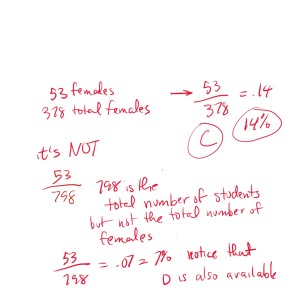 53 females → 53/378 = .14
378 total females
C 14%
it's NOT
53/798 798 is the
total number of students
but not the total number of
females
53/798 = .07 = 7% notice that
D is also available